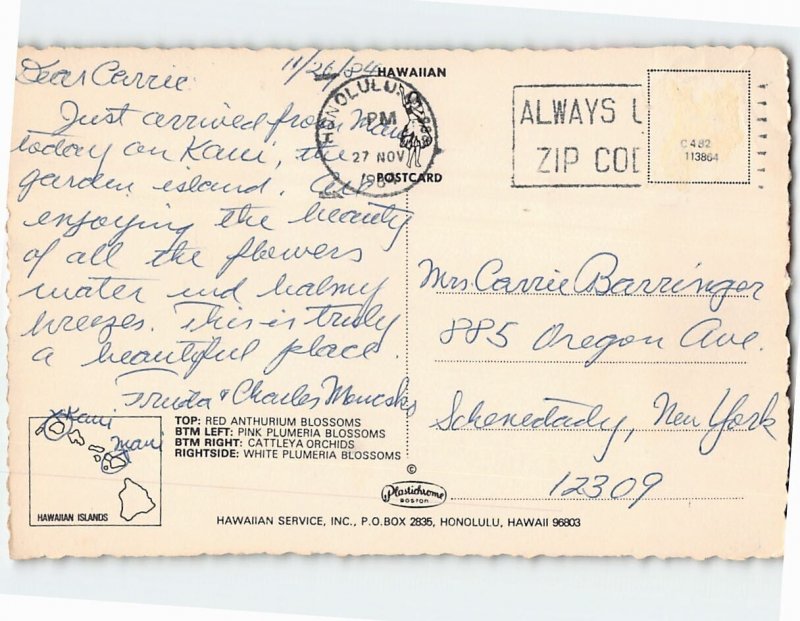 11/26/84
Dear Carrie:
Just arrived from Maui
today on Kaui, the
garden island. Am
enjoying the beauty
of all the flowers
water and balmy
breezes. This is truly
a beautiful place.
Truda & Charles
HAWAIIAN
POSTCARD
HONOLULU
PM
27 NOV
1984
ALWAYS U
ZIP COD
C482
113864
Mrs. Carrie Barringer
885 Oregon Ave.
Schenectady, New York
12309
Kaui
Maui
HAWAIIAN ISLANDS
TOP: RED ANTHURIUM BLOSSOMS
BTM LEFT: PINK PLUMERIA BLOSSOMS
BTM RIGHT: CATTLEYA ORCHIDS
RIGHTSIDE: WHITE PLUMERIA BLOSSOMS
©
Plastichrome
BOSTON
HAWAIIAN SERVICE, INC., P.O.BOX 2835, HONOLULU, HAWAII 96803